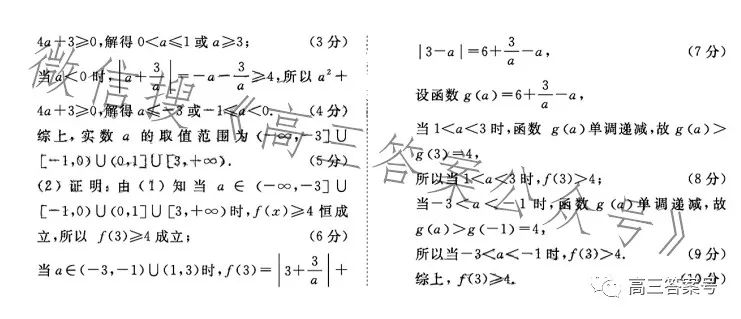 4a+3≥0,解得 0<a≤1 或 a≥3; (3 分)
当 a<0 时,|a+3/a|=-a-3/a≥4,所以 a²+
4a+3≥0,解得 a≤-3 或 -1≤a<0. (4 分)
综上,实数 a 的取值范围为 (-∞,-3]∪
[-1,0)∪(0,1]∪[3,+∞). (5 分)
(2) 证明:由 (1) 知当 a∈(-∞,-3]∪
[-1,0)∪(0,1]∪[3,+∞) 时,f(x)≥4 恒成
立,所以 f(3)≥4 成立; (6 分)
当 a∈(-3,-1)∪(1,3) 时,f(3)=|3+3/a|+
|3-a|=6+3/a-a, (7 分)
设函数 g(a)=6+3/a-a,
当 1<a<3 时,函数 g(a) 单调递减,故 g(a)>
g(3)=4,
所以当 1<a<3 时,f(3)>4; (8 分)
当 -3<a<-1 时,函数 g(a) 单调递减,故
g(a)>g(-1)=4,
所以当 -3<a<-1 时,f(3)>4. (9 分)
综上,f(3)≥4. (10 分)
微信搜《高三答案公众号》
高三答案号